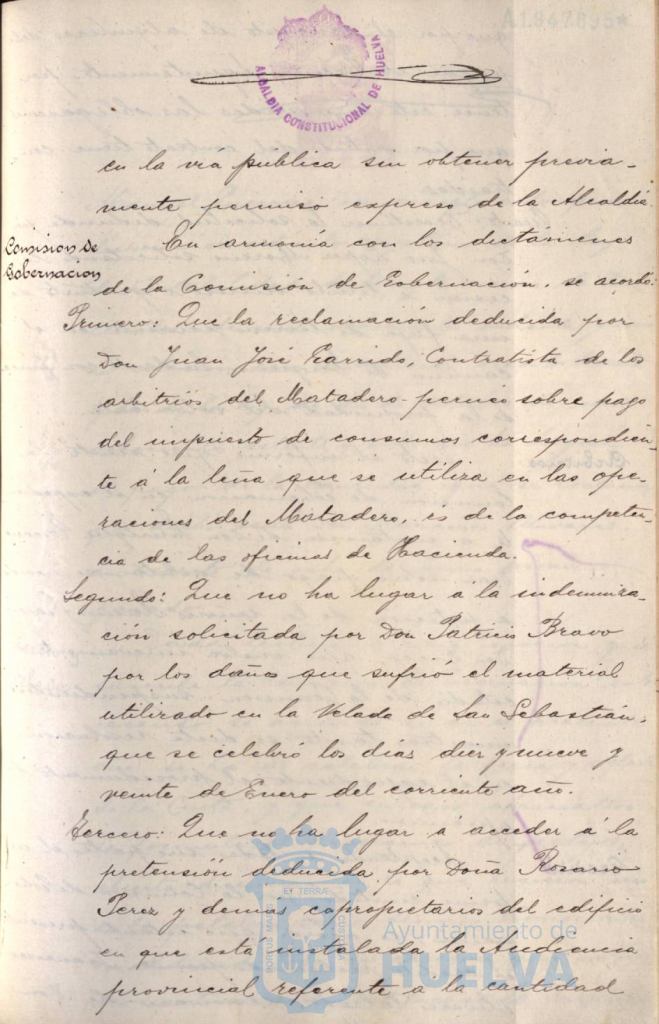 A1.947.695*
ALCALDIA CONSTITUCIONAL DE HUELVA
en la vía pública sin obtener previa-
mente permiso expreso de la Alcaldía.
Comision de
Gobernacion
En armonía con los dictámenes
de la Comisión de Gobernación, se acordó:
Primero: Que la reclamación deducida por
Don Juan José Garrido, Contratista de los
arbitrios del Matadero sobre pago
del impuesto de consumos correspondien-
te á la leña que se utiliza en las ope-
raciones del Matadero, es de la competen-
cia de las oficinas de Hacienda.
Segundo: Que no ha lugar á la indemniza-
ción solicitada por Don Patricio Bravo
por los daños que sufrió el material
utilizado en la Velada de San Sebastián,
que se celebró los días diez y nueve y
veinte de Enero del corriente año.
Tercero: Que no ha lugar á acceder á la
pretensión deducida por Doña Rosario
Perez y demás copropietarios del edificio
en que está instalada la Audiencia
provincial referente a la cantidad
ET TERRÆ
PORTUS MARIS
CUSTODIA
Ayuntamiento de
HUELVA